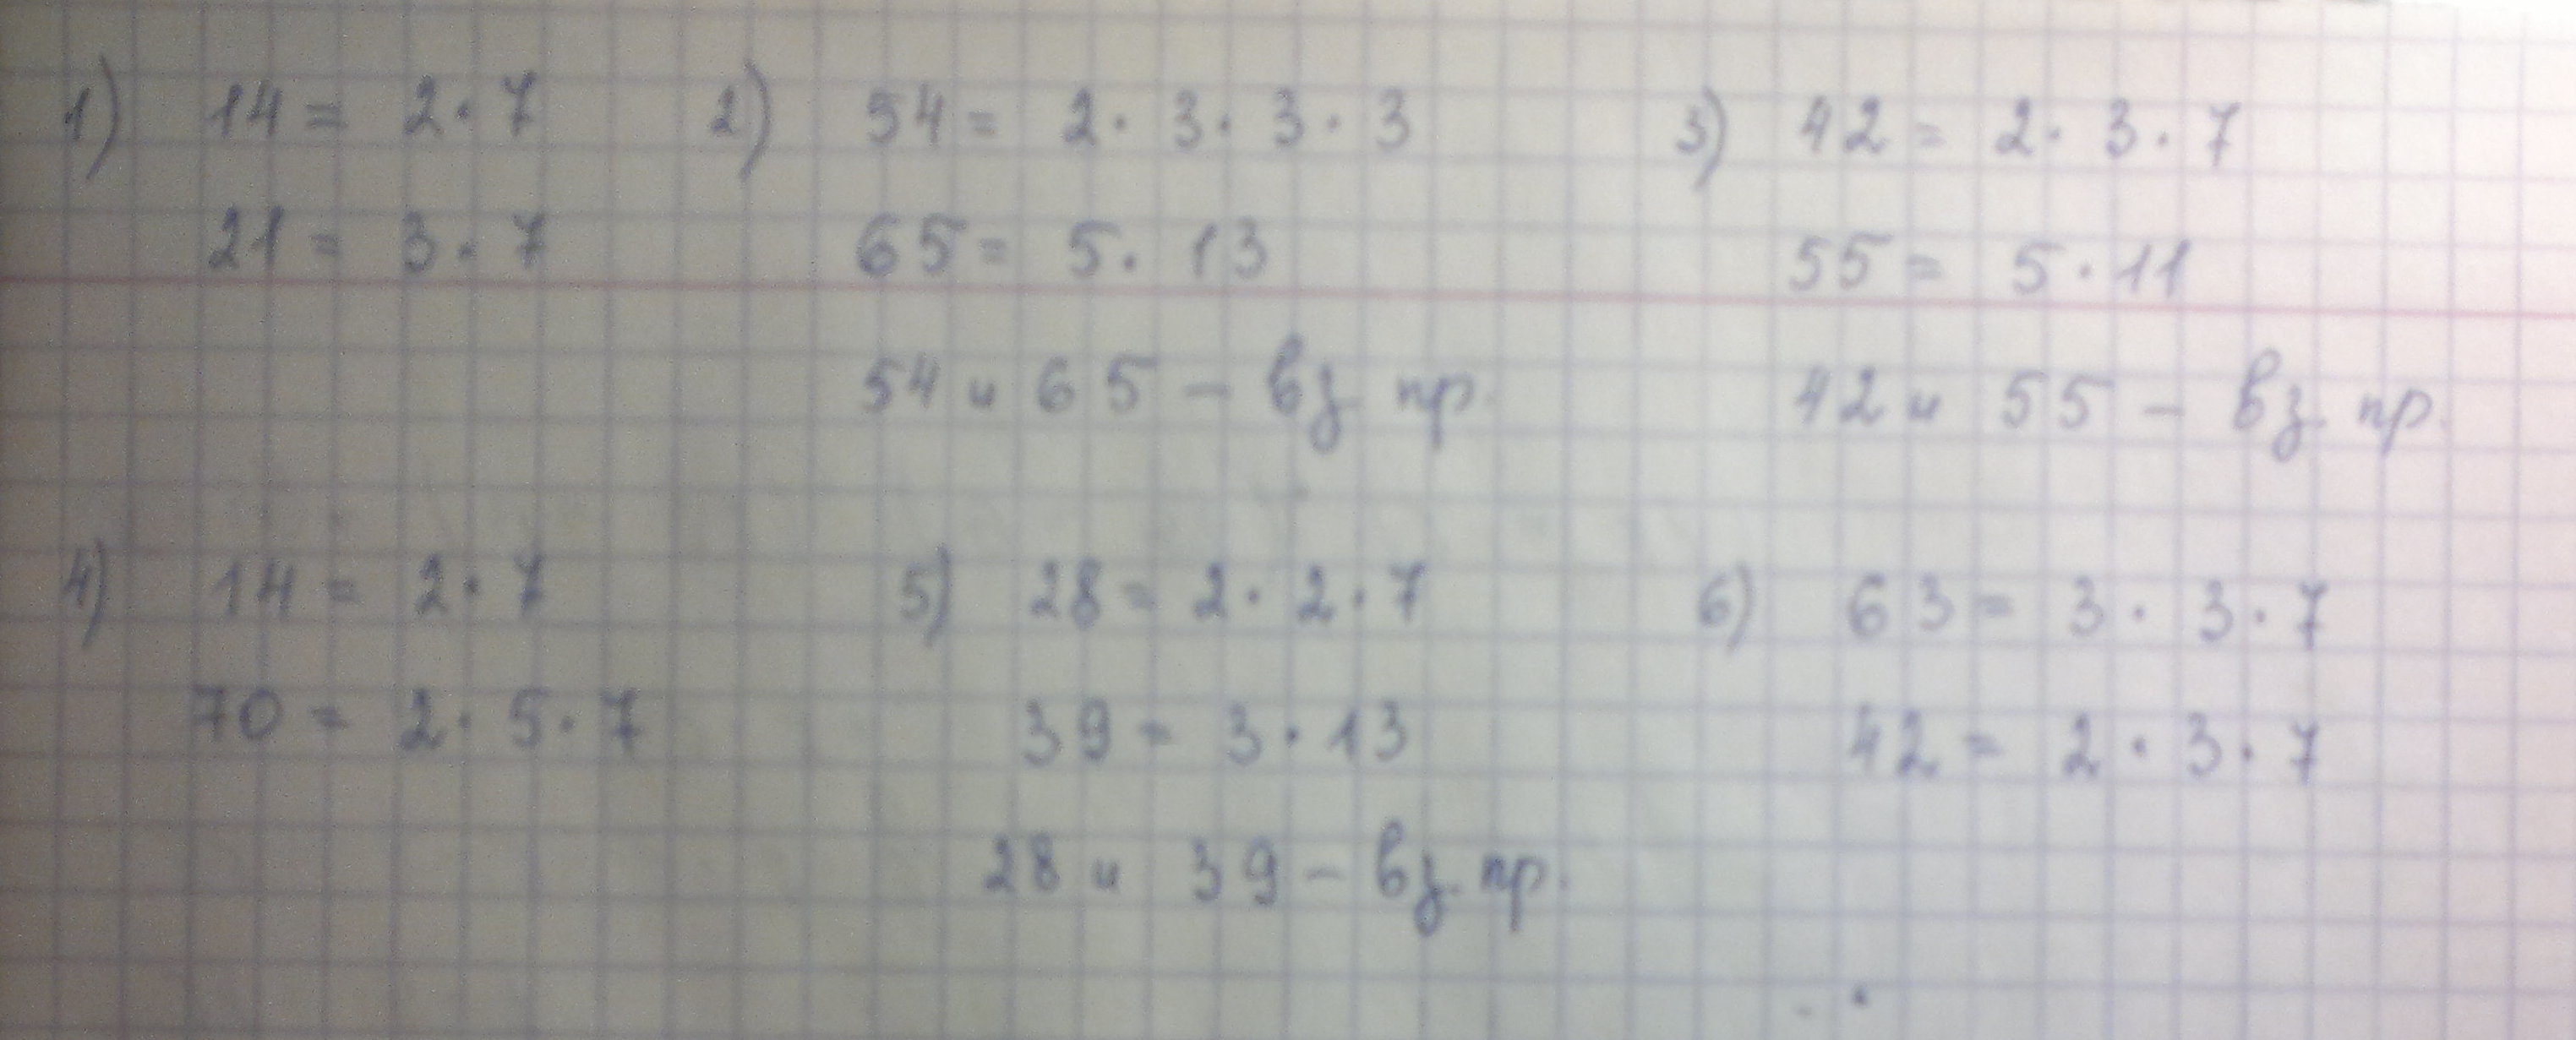 1) 14 = 2 · 7
21 = 3 · 7
2) 54 = 2 · 3 · 3 · 3
65 = 5 · 13
54 и 65 – вз. пр.
3) 42 = 2 · 3 · 7
55 = 5 · 11
42 и 55 – вз. пр.
4) 14 = 2 · 7
70 = 2 · 5 · 7
5) 28 = 2 · 2 · 7
39 = 3 · 13
28 и 39 – вз. пр.
6) 63 = 3 · 3 · 7
42 = 2 · 3 · 7